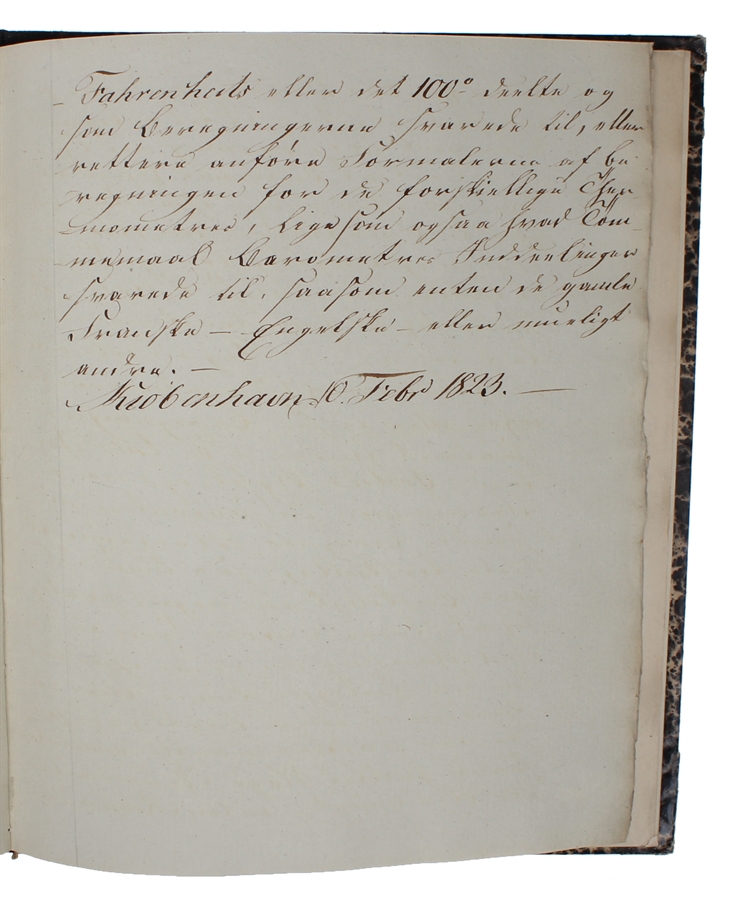 Fahrenheits eller det 100° deelte og
som Beregningerne svarede til, eller
rettere anføre Formalerne af Be
regningen for de forskiellige Ther
mometres, ligesom ogsaa hvad Tom-
memaal Barometres Inddeelinger
svarede til, saasom enten de gamle
Franske – Engelske – eller mueligt
andre. –
Kiøbenhavn Febr 1823. –